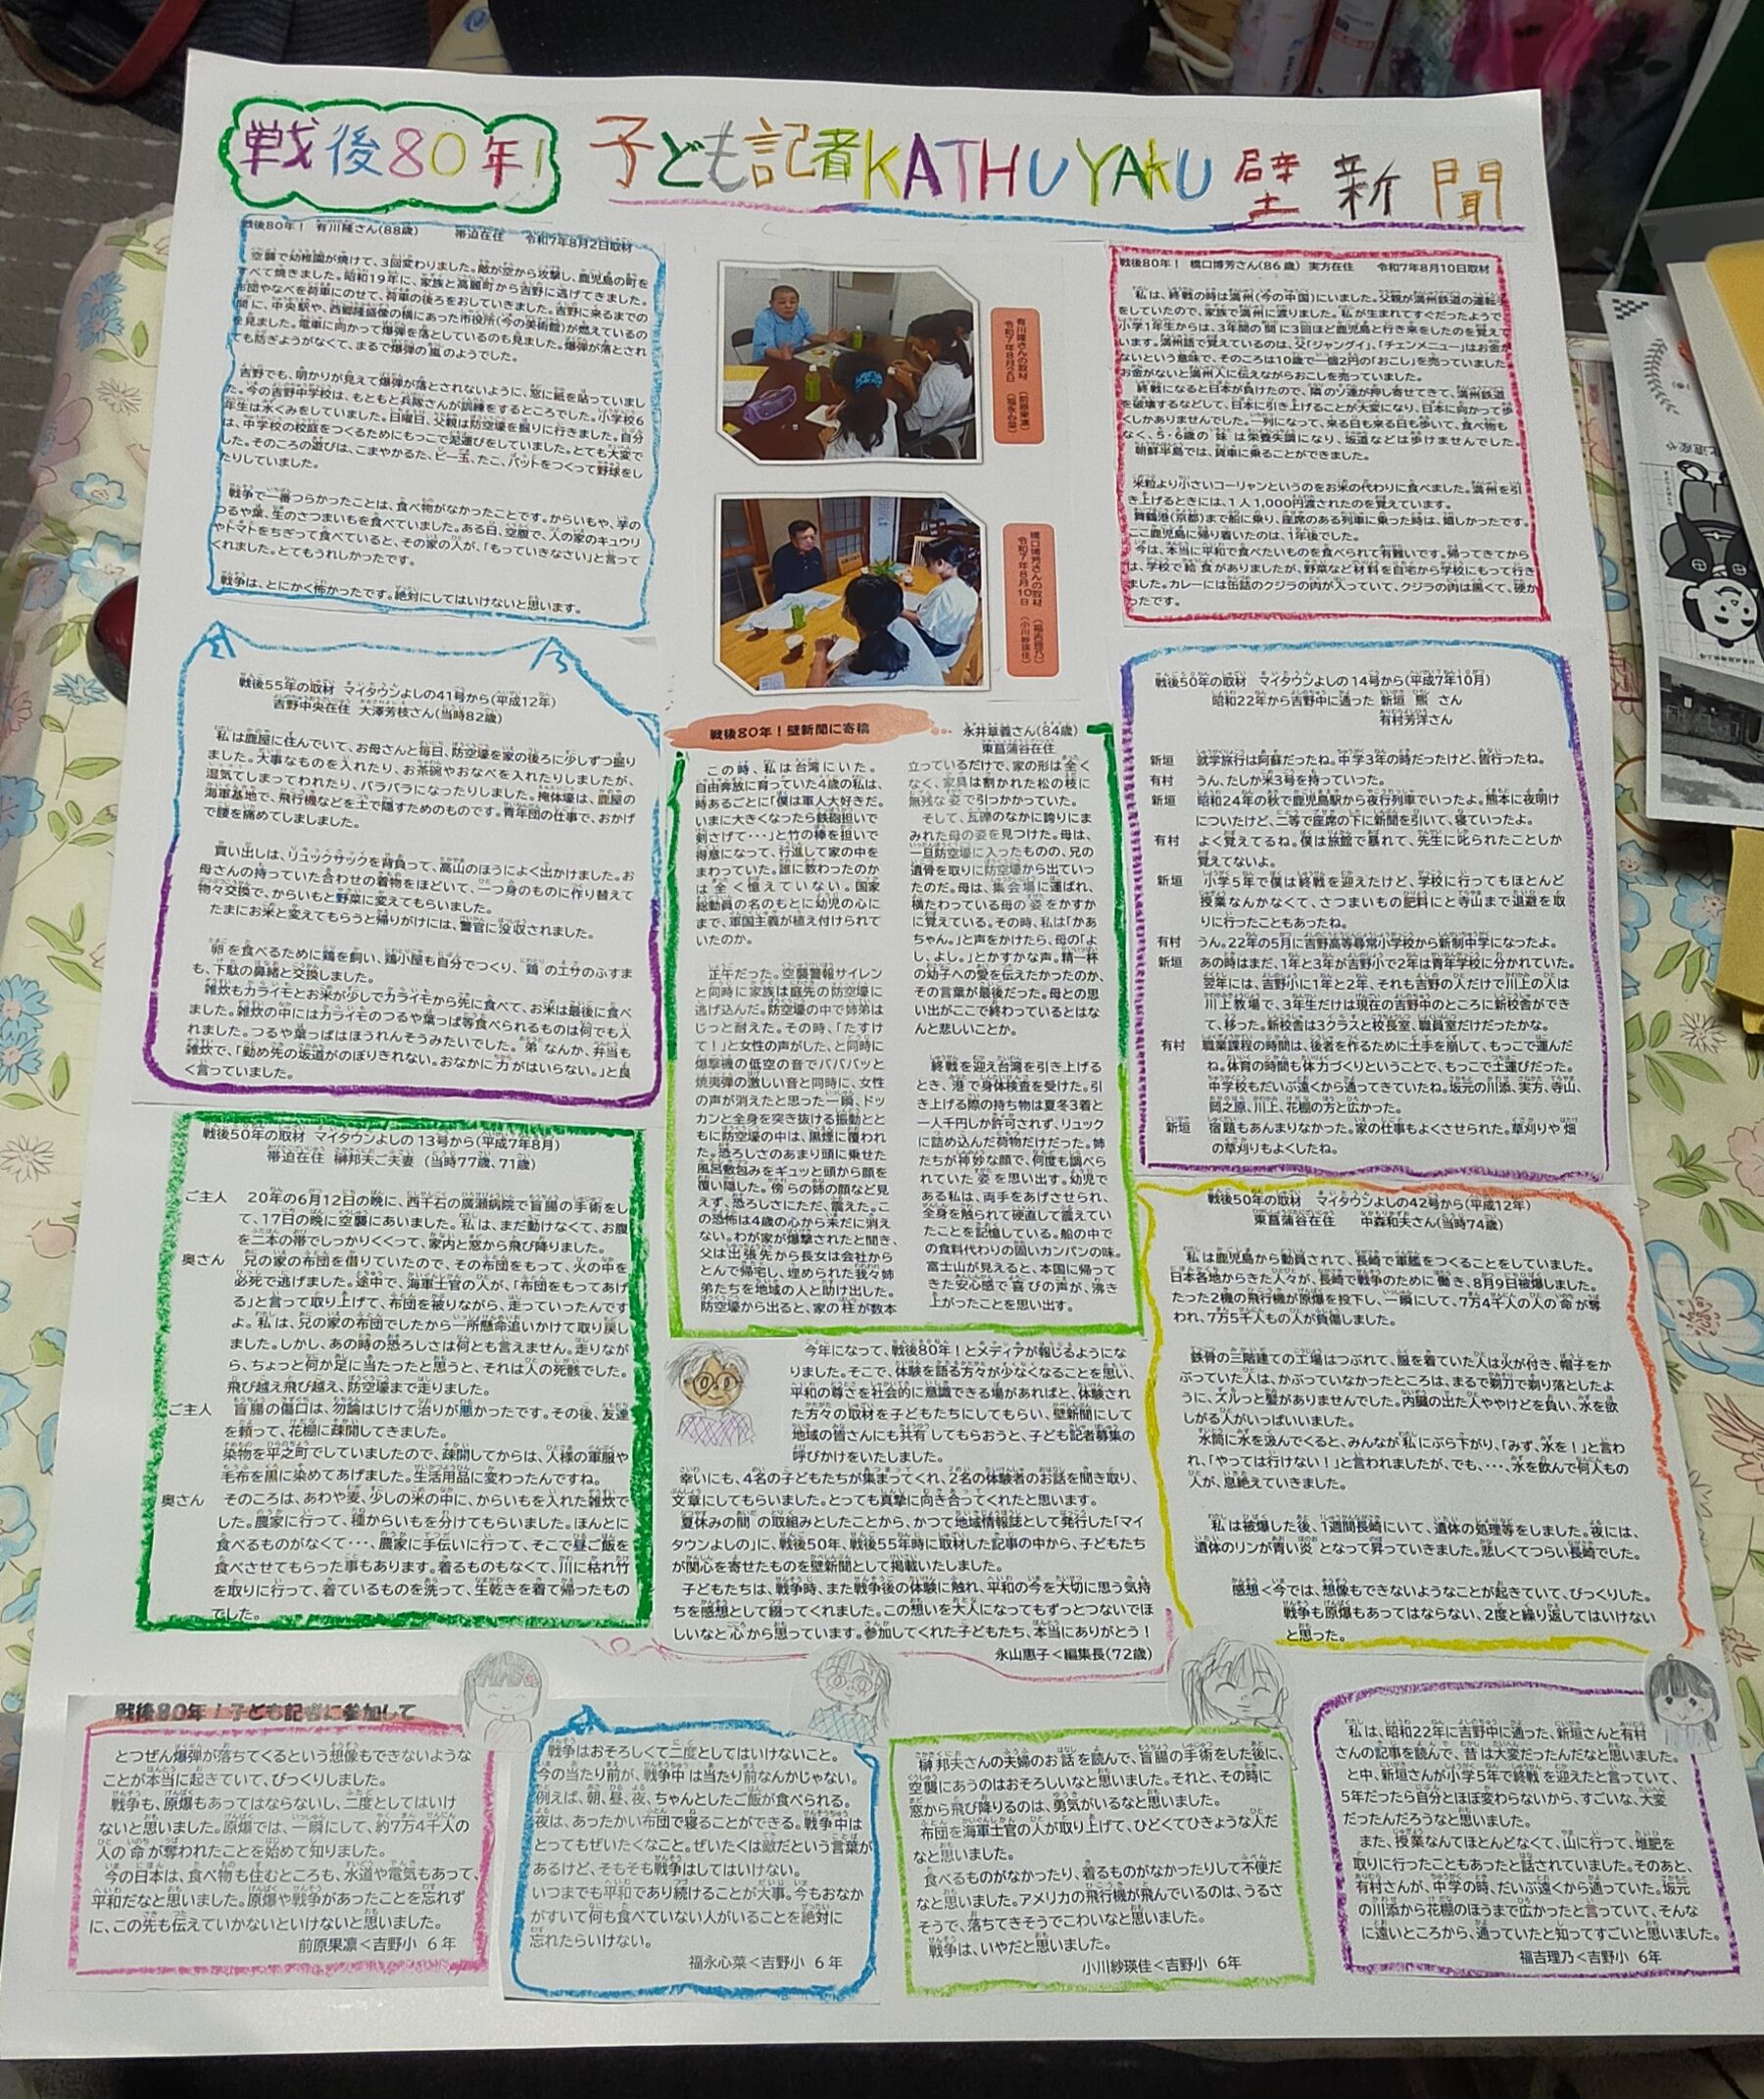 戦後80年!
子ども記者KATHUYAKU壁新聞
戦後80年! 有川隆さん(88歳) 帯迫在住 令和7年8月2日取材
空襲で幼稚園が焼けて、3回変わりました。敵が空から攻撃し、鹿児島の町を
すべて焼きました。昭和19年に、家族と高麗町から吉野に逃げてきました。
布団やなべを荷車にのせて、荷車の後ろをおしていきました。吉野に来るまでの
間に、中央駅や、西郷隆盛像の横にあった市役所(今の美術館)が燃えているの
を見ました。電車に向かって爆弾を落としているのも見ました。爆弾が落とされ
ても防ぎようがなくて、まるで爆弾の嵐のようでした。
吉野でも、明かりが見えて爆弾が落とされないように、窓に紙を貼っていまし
た。今の吉野中学校は、もともと兵隊さんが訓練をするところでした。小学校6
年生は水くみをしていました。日曜日、父親は防空壕を掘りに行きました。自分
は、中学校の校庭をつくるためにもっこで泥運びをしていました。とても大変で
した。そのころの遊びは、こまやかるた、ビー玉、たこ、バットをつくって野球をし
たりしていました。
戦争で一番つらかったことは、食べ物がなかったことです。からいもや、芋の
つるや葉、生のさつまいもを食べていました。ある日、空腹で、人の家のキュウリ
やトマトをちぎって食べていると、その家の人が、「もっていきなさい」と言って
くれました。とてもうれしかったです。
戦争は、とにかく怖かったです。絶対にしてはいけないと思います。
有川隆さんの取材
令和7年8月2日
(前原果凛)
(福永心菜)
橋口博芳さんの取材
令和7年8月10日
(福吉理乃)
(小川紗瑛佳)
戦後80年! 橋口博芳さん(86歳) 実方在住 令和7年8月10日取材
私は、終戦の時は満州(今の中国)にいました。父親が満州鉄道の運転手
をしていたので、家族で満州に渡りました。私が生まれてすぐだったようで
小学1年生からは、3年間の間に3回ほど鹿児島と行き来をしたのを覚えて
います。満州語で覚えているのは、父「ジャングイ」、「チェンメニュー」はお金が
ないという意味で、そのころは10歳で一個2円の「おこし」を売っていました
お金がないと満州人に伝えながらおこしを売っていました。
終戦になると日本が負けたので、隣のソ連が押し寄せてきて、満州鉄道
を破壊するなどして、日本に引き上げることが大変になり、日本に向かって歩
くしかありませんでした。一列になって、来る日も来る日も歩いて、食べ物も
なく、5・6歳の妹は栄養失調になり、坂道などは歩けませんでした。
朝鮮半島では、貨車に乗ることができました。
米粒より小さいコーリャンというのをお米の代わりに食べました。満州を引
き上げるときには、1人1,000円渡されたのを覚えています。
舞鶴港(京都)まで船に乗り、座席のある列車に乗った時は、嬉しかったです。
ここ鹿児島に帰り着いたのは、1年後でした。
今は、本当に平和で食べたいものを食べられて有難いです。帰ってきてから
は、学校で給食がありましたが、野菜など材料を自宅から学校にもって行き
ました。カレーには缶詰のクジラの肉が入っていて、クジラの肉は黒くて、硬か
ったです。
戦後55年の取材 マイタウンよしの41号から(平成12年)
吉野中央在住 大澤芳枝さん(当時82歳)
私は鹿屋に住んでいて、お母さんと毎日、防空壕を家の後ろに少しずつ掘り
ました。大事なものを入れたり、お茶碗やおなべを入れたりしましたが、
湿気てしまってわれたり、バラバラになったりしました。掩体壕は、鹿屋の
海軍基地で、飛行機などを土で隠すためのものです。青年団の仕事で、おかげ
で腰を痛めてしましました。
買い出しは、リュックサックを背負って、高山のほうによく出かけました。お
母さんの持っていた合わせの着物をほどいて、一つ身のものに作り替えて
物々交換で、からいもと野菜に変えてもらいました。
たまにお米と変えてもらうと帰りがけには、警官に没収されました。
卵を食べるために鶏を飼い、鶏小屋も自分でつくり、鶏のエサのふすま
も、下駄の鼻緒と交換しました。
雑炊もカライモとお米が少しでカライモから先に食べて、お米は最後に食べ
ました。雑炊の中にはカライモのつるや葉っぱ等食べられるものは何でも入
れました。つるや葉っぱはほうれんそうみたいでした。弟なんか、弁当も
雑炊で、「勤め先の坂道がのぼりきれない。おなかに力がはいらない。」と良
く言っていました。
戦後80年!壁新聞に寄稿
永井章義さん(84歳)
東菖蒲谷在住
この時、私は台湾にいた。
自由奔放に育っていた4歳の私は、
時あるごとに「僕は軍人大好きだ。
いまに大きくなったら鉄砲担いで
剣さげて・・・」と竹の棒を担いで
得意になって、行進して家の中を
まわっていた。誰に教わったのか
は全く憶えていない。国家
総動員の名のもとに幼児の心に
まで、軍国主義が植え付けられて
いたのか。
正午だった。空襲警報サイレン
と同時に家族は庭先の防空壕に
逃げ込んだ。防空壕の中で姉弟は
じっと耐えた。その時、「たすけ
て!」と女性の声がした、と同時に
爆撃機の低空の音でバババッと
焼夷弾の激しい音と同時に、女性
の声が消えたと思った一瞬、ドッ
カンと全身を突き抜ける振動とと
もに防空壕の中は、黒煙に覆われ
た。恐ろしさのあまり頭に乗せた
風呂敷包みをギュッと頭から顔を
覆い隠した。傍らの姉の顔など見
えず、恐ろしさにただ、震えた。こ
の恐怖は4歳の心から未だに消え
ない。わが家が爆撃されたと聞き、
父は出張先から長女は会社から
とんで帰宅し、埋められた我々姉
弟たちを地域の人と助け出した。
防空壕から出ると、家の柱が数本
立っているだけで、家の形は全く
なく、家具は割かれた松の枝に
無残な姿で引っかかっていた。
そして、瓦礫のなかに誇りにま
みれた母の姿を見つけた。母は、
一旦防空壕に入ったものの、兄の
遺骨を取りに防空壕から出ていっ
たのだ。母は、集会場に運ばれ、
横たわっている母の姿をかすか
に覚えている。その時、私は「かあ
ちゃん。」と声をかけたら、母の「よ
し、よし。」とかすかな声。精一杯
の幼子への愛を伝えたかったのか、
その言葉が最後だった。母との思
い出がここで終わっているとはな
んと悲しいことか。
終戦を迎え台湾を引き上げる
とき、港で身体検査を受けた。引
き上げる際の持ち物は夏冬3着と
一人千円しか許可されず、リュック
に詰め込んだ荷物だけだった。姉
たちが神妙な顔で、何度も調べら
れていた姿を思い出す。幼児で
ある私は、両手をあげさせられ、
全身を触られて硬直して震えてい
たことを記憶している。船の中で
の食料代わりの固いカンパンの味。
富士山が見えると、本国に帰って
きた安心感で喜びの声が、沸き
上がったことを思い出す。
戦後50年の取材 マイタウンよしの14号から(平成7年10月)
昭和22年から吉野中に通った 新垣 熙 さん
有村芳洋さん
新垣 就学旅行は阿蘇だったね。中学3年の時だったけど、皆行ったね。
有村 うん、たしか米3号を持っていった。
新垣 昭和24年の秋で鹿児島駅から夜行列車でいったよ。熊本に夜明け
についたけど、二等で座席の下に新聞を引いて、寝ていったよ。
有村 よく覚えてるね。僕は旅館で暴れて、先生に叱られたことしか
覚えてないよ。
新垣 小学5年で僕は終戦を迎えたけど、学校に行ってもほとんど
授業なんかなくて、さつまいもの肥料にと寺山まで退避を取
りに行ったこともあったね。
有村 うん。22年の5月に吉野高等尋常小学校から新制中学になったよ。
新垣 あの時はまだ、1年と3年が吉野小で2年は青年学校に分かれていた。
翌年には、吉野小に1年と2年、それも吉野の人だけで川上の人は
川上教場で、3年生だけは現在の吉野中のところに新校舎ができ
て、移った。新校舎は3クラスと校長室、職員室だけだったかな。
有村 職業課程の時間は、後者を作るために土手を崩して、もっこで運んだ
ね。体育の時間も体力づくりということで、もっこで土運びだった。
中学校もだいぶ遠くから通ってきていたね。坂元の川添、実方、寺山、
岡之原、川上、花棚の方と広かった。
新垣 宿題もあんまりなかった。家の仕事もよくさせられた。草刈りや畑
の草刈りもよくしたね。
戦後50年の取材 マイタウンよしの 13号から(平成7年8月)
帯迫在住 榊邦夫ご夫妻 (当時77歳、71歳)
ご主人 20年の6月12日の晩に、西千石の廣瀬病院で盲腸の手術をし
て、17日の晩に空襲にあいました。私は、まだ動けなくて、お腹
を二本の帯でしっかりくくって、家内と窓から飛び降りました。
奥さん 兄の家の布団を借りていたので、その布団をもって、火の中を
必死で逃げました。途中で、海軍士官の人が、「布団をもってあげ
る」と言って取り上げて、布団を被りながら、走っていったんです
よ。私は、兄の家の布団でしたから一所懸命追いかけて取り戻し
ました。しかし、あの時の恐ろしさは何とも言えません。走りなが
ら、ちょっと何か足に当たったと思うと、それは人の死骸でした。
飛び越え飛び越え、防空壕まで走りました。
ご主人 盲腸の傷口は、勿論はじけて治りが悪かったです。その後、友達
を頼って、花棚に疎開してきました。
染物を平之町でしていましたので、疎開してからは、人様の軍服や
毛布を黒に染めてあげました。生活用品に変わったんですね。
奥さん そのころは、あわや麦、少しの米の中に、からいもを入れた雑炊で
した。農家に行って、種からいもを分けてもらいました。ほんとに
食べるものがなくて・・・、農家に手伝いに行って、そこで昼ご飯を
食べさせてもらった事もあります。着るものもなくて、川に枯れ竹
を取りに行って、着ているものを洗って、生乾きを着て帰ったもの
でした。
今年になって、戦後80年!とメディアが報じるようにな
りました。そこで、体験を語る方々が少なくなることを思い、
平和の尊さを社会的に意識できる場があればと、体験され
た方々の取材を子どもたちにしてもらい、壁新聞にして
地域の皆さんにも共有してもらおうと、子ども記者募集の
呼びかけをいたしました。
幸いにも、4名の子どもたちが集まってくれ、2名の体験者のお話を聞き取り、
文章にしてもらいました。とっても真摯に向き合ってくれたと思います。
夏休みの間の取組みとしたことから、かつて地域情報誌として発行した「マイ
タウンよしの」に、戦後50年、戦後55年時に取材した記事の中から、子どもたち
が関心を寄せたものを壁新聞として掲載いたしました。
子どもたちは、戦争時、また戦争後の体験に触れ、平和の今を大切に思う気持
ちを感想として綴ってくれました。この想いを大人になってもずっとつないでほ
しいなと心から思っています。参加してくれた子どもたち、本当にありがとう!
永山惠子<編集長(72歳)
戦後50年の取材 マイタウンよしの42号から(平成12年)
東菖蒲谷在住 中森和夫さん(当時74歳)
私は鹿児島から動員されて、長崎で軍艦をつくることをしていました。
日本各地からきた人々が、長崎で戦争のために働き、8月9日被爆しました。
たった2機の飛行機が原爆を投下し、一瞬にして、7万4千人の人の命が奪
われ、7万5千人もの人が負傷しました。
鉄骨の三階建ての工場はつぶれて、服を着ていた人は火が付き、帽子をか
ぶっていた人は、かぶっていなかったところは、まるで剃刀で剃り落としたよ
うに、ズルっと髪がありませんでした。内臓の出た人ややけどを負い、水を欲
しがる人がいっぱいいました。
水筒に水を汲んでくると、みんなが私にぶら下がり、「みず、水を!」と言わ
れ、「やっては行けない!」と言われましたが、でも、・・・、水を飲んで何人もの
人が、息絶えていきました。
私は被爆した後、1週間長崎にいて、遺体の処理等をしました。夜には、
遺体のリンが青い炎となって昇っていきました。悲しくてつらい長崎でした。
感想<今では、想像もできないようなことが起きていて、びっくりした。
戦争も原爆もあってはならない、2度と繰り返してはいけない
と思った。
戦後80年!子ども記者に参加して
とつぜん爆弾が落ちてくるという想像もできないような
ことが本当に起きていて、びっくりしました。
戦争も、原爆もあってはならないし、二度としてはいけ
ないと思いました。原爆では、一瞬にして、約7万4千人の
人の命が奪われたことを始めて知りました。
今の日本は、食べ物も住むところも、水道や電気もあって、
平和だなと思いました。原爆や戦争があったことを忘れず
に、この先も伝えていかないといけないと思いました。
前原果凛<吉野小 6年
戦争はおそろしくて二度としてはいけないこと。
今の当たり前が、戦争中は当たり前なんかじゃない。
例えば、朝、昼、夜、ちゃんとしたご飯が食べられる。
夜は、あったかい布団で寝ることができる。戦争中は
とってもぜいたくなこと。ぜいたくは敵だという言葉が
あるけど、そもそも戦争はしてはいけない。
いつまでも平和であり続けることが大事。今もおなか
がすいて何も食べていない人がいることを絶対に
忘れたらいけない。
福永心菜<吉野小 6年
榊邦夫さんの夫婦のお話を読んで、盲腸の手術をした後に、
空襲にあうのはおそろしいなと思いました。それと、その時に
窓から飛び降りるのは、勇気がいるなと思いました。
布団を海軍士官の人が取り上げて、ひどくてひきょうな人だ
なと思いました。
食べるものがなかったり、着るものがなかったりして不便だ
なと思いました。アメリカの飛行機が飛んでいるのは、うるさ
そうで、落ちてきそうでこわいなと思いました。
戦争は、いやだと思いました。
小川紗瑛佳<吉野小 6年
私は、昭和22年に吉野中に通った、新垣さんと有村
さんの記事を読んで、昔は大変だったんだなと思いました。
と中、新垣さんが小学5年で終戦を迎えたと言っていて、
5年だったら自分とほぼ変わらないから、すごいな、大変
だったんだろうなと思いました。
また、授業なんてほとんどなくて、山に行って、堆肥を
取りに行ったこともあったと話されていました。そのあと、
有村さんが、中学の時、だいぶ遠くから通っていた。坂元
の川添から花棚のほうまで広かったと言っていて、そんな
に遠いところから、通っていたと知ってすごいと思いました。
福吉理乃<吉野小 6年